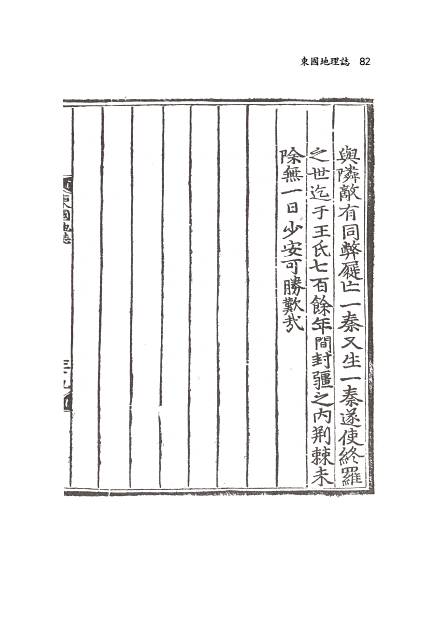 東國地理誌 82
與隣敵有同弊屣亡一秦又生一秦遂使終羅
之世迄于王氏七百餘年間封疆之內荊棘未
除無一日少安可勝歎哉